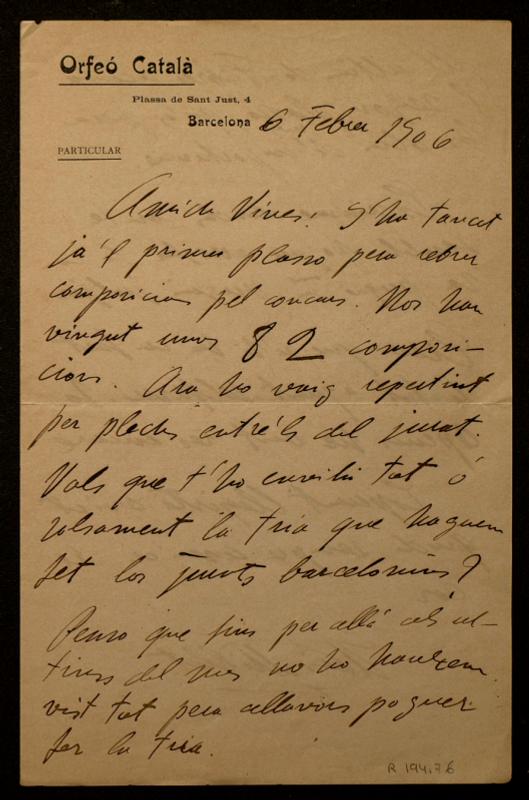 Orfeó Català
Plassa de Sant Just, 4
Barcelona 6 Febrer 1906
PARTICULAR
Amich Vives: S'ha tancat
ja'l primer plasso pera rebrer
composicions pel concurs. Nos han
vingut unes 82 composi-
cions. Ara ho vaig repartint
per plechs entre'ls del jurat.
Vols que t'ho envihi tot ó
solsament la tria que haguem
fet los jurats barcelonins?
Penso que fins per allá als ul-
tims del mes no ho haurem
vist tot pera allavors poguer
fer la tria.
R 194.76